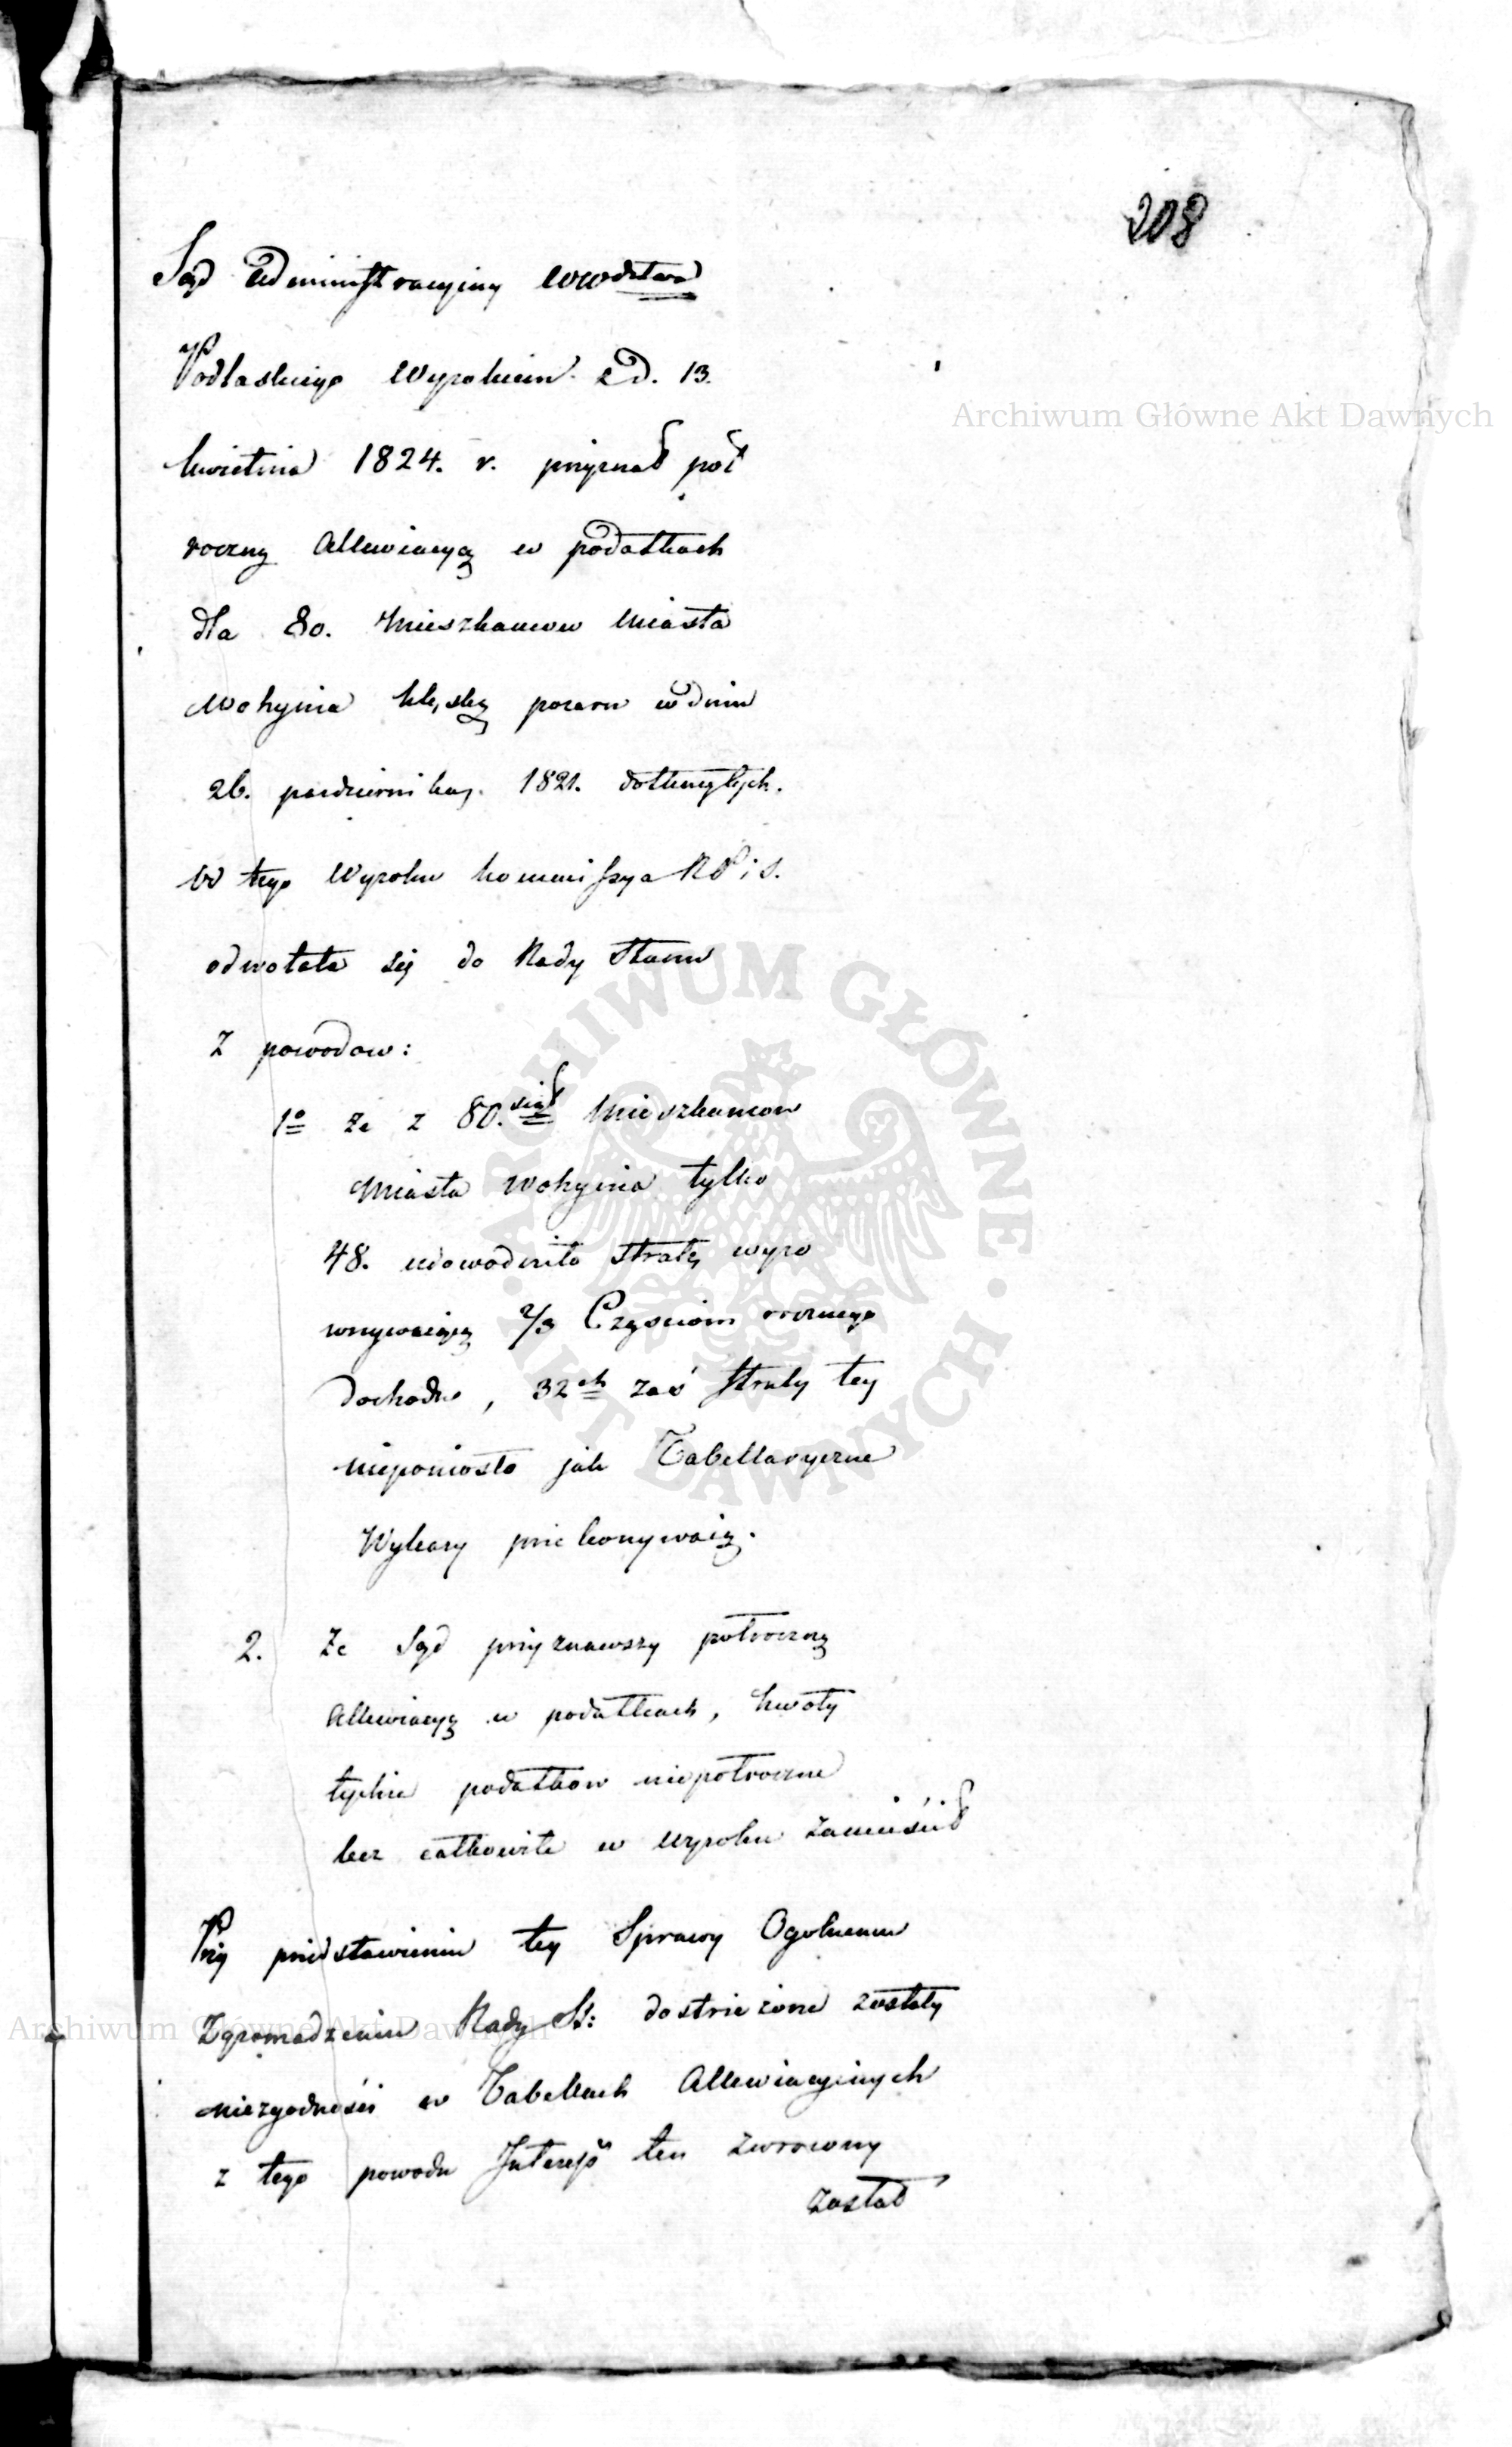 208
Sąd Administracyiny Wwdztwa
Podlaskiego Wyrokiem z D. 13.
kwietnia 1824. r. przyznał pół
roczną Allewiacyą w podatkach
dla 80. Mieszkancow Miasta
Wohynia klęską pozaru w dniu
26. pazdziernika, 1821. dotkniętych.
Od tego Wyroku Kommissya RP i S.
odwołała się do Rady Stanu
Z powodow:
1º Ze z 80.siąt Mieszkancow
Miasta Wohynia tylko
48. udowodniło stratę wyro
wnywaiącą 2/3 Częsciom rocznego
dochodu, 32ch zaś straty tey
nieponiosło jak Tabellaryczne
Wykazy przekonywaią.
2. Ze Sąd przyznawszy połroczną
Allewiacyą w podatkach, kwoty
tychże podatkow niepołroczne
lecz całkowite w wyroku zamieścił
Przy przedstawieniu tey Sprawy Ogolnemu
Zgromadzeniu Rady St: dostrzezone zostały
niezgodności w Tabellach Allewiacyinych
z tego powodu Interess ten zwrocony
został
Archiwum Główne Akt Dawnych
ARCHIWUM GŁÓWNE AKT DAWNYCH
Archiwum Główne Akt Dawnych